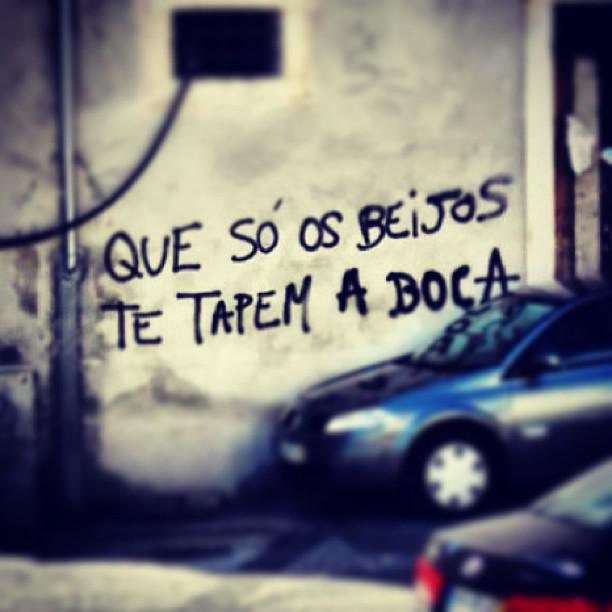 QUE SÓ OS BEiJOS
TE TAPEM A BOCA